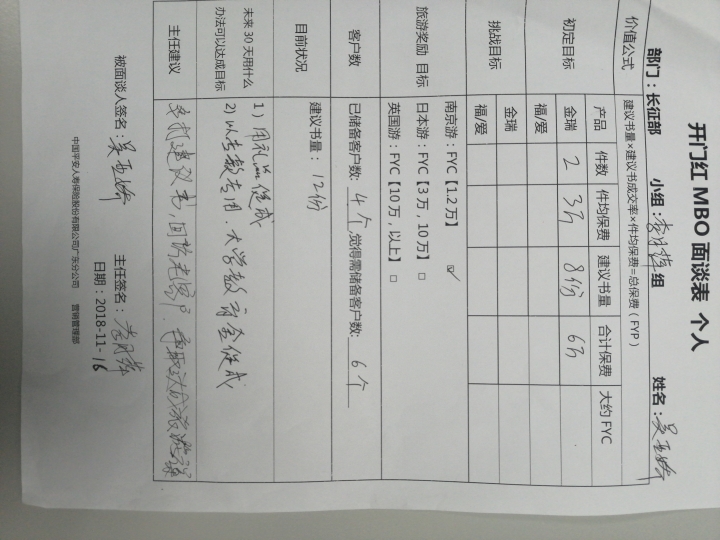 开门红 MBO 面谈表 个人
部门：长征部 小组：李月 组 姓名：吴亚娇
价值公式 建议书量×建议书成交率×件均保费=总保费（FYP）
产品 件数 件均保费 建议书量 合计保费 大约 FYC
初定目标 金瑞 2 3万 8份 6万
福/爱
挑战目标 金瑞
福/爱
旅游奖励 目标
南京游：FYC【1.2 万】 ☑
日本游：FYC【3 万，10 万】 □
英国游：FYC【10 万，以上】 □
客户数 已储备客户数: 4个 ,觉得需储备客户数: 6个
目前状况 建议书量： 12份
未来 30 天用什么办法可以达成目标
1）用礼品促成
2）以专款专用．大学教育金促成
主任建议 多打建议书，回访老客户．争取达成旅游
被面谈人签名：吴亚娇 主任签名：李月
日期：2018-11-16
中国平安人寿保险股份有限公司广东分公司 营销管理部